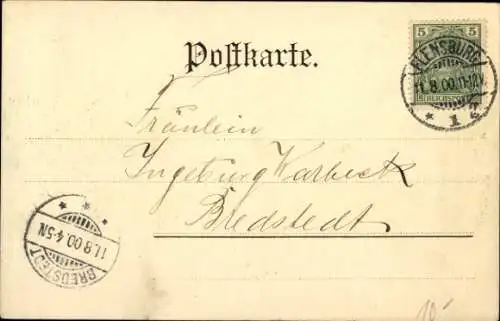 5
REICHSPOST
FLENSBURG
11.8.00.11-12V.
* 1 z
Postkarte.
Fräulein
Ingeburg Warbeck
Bredstedt
BREDSTEDT
11.8.00.4-5N.
10